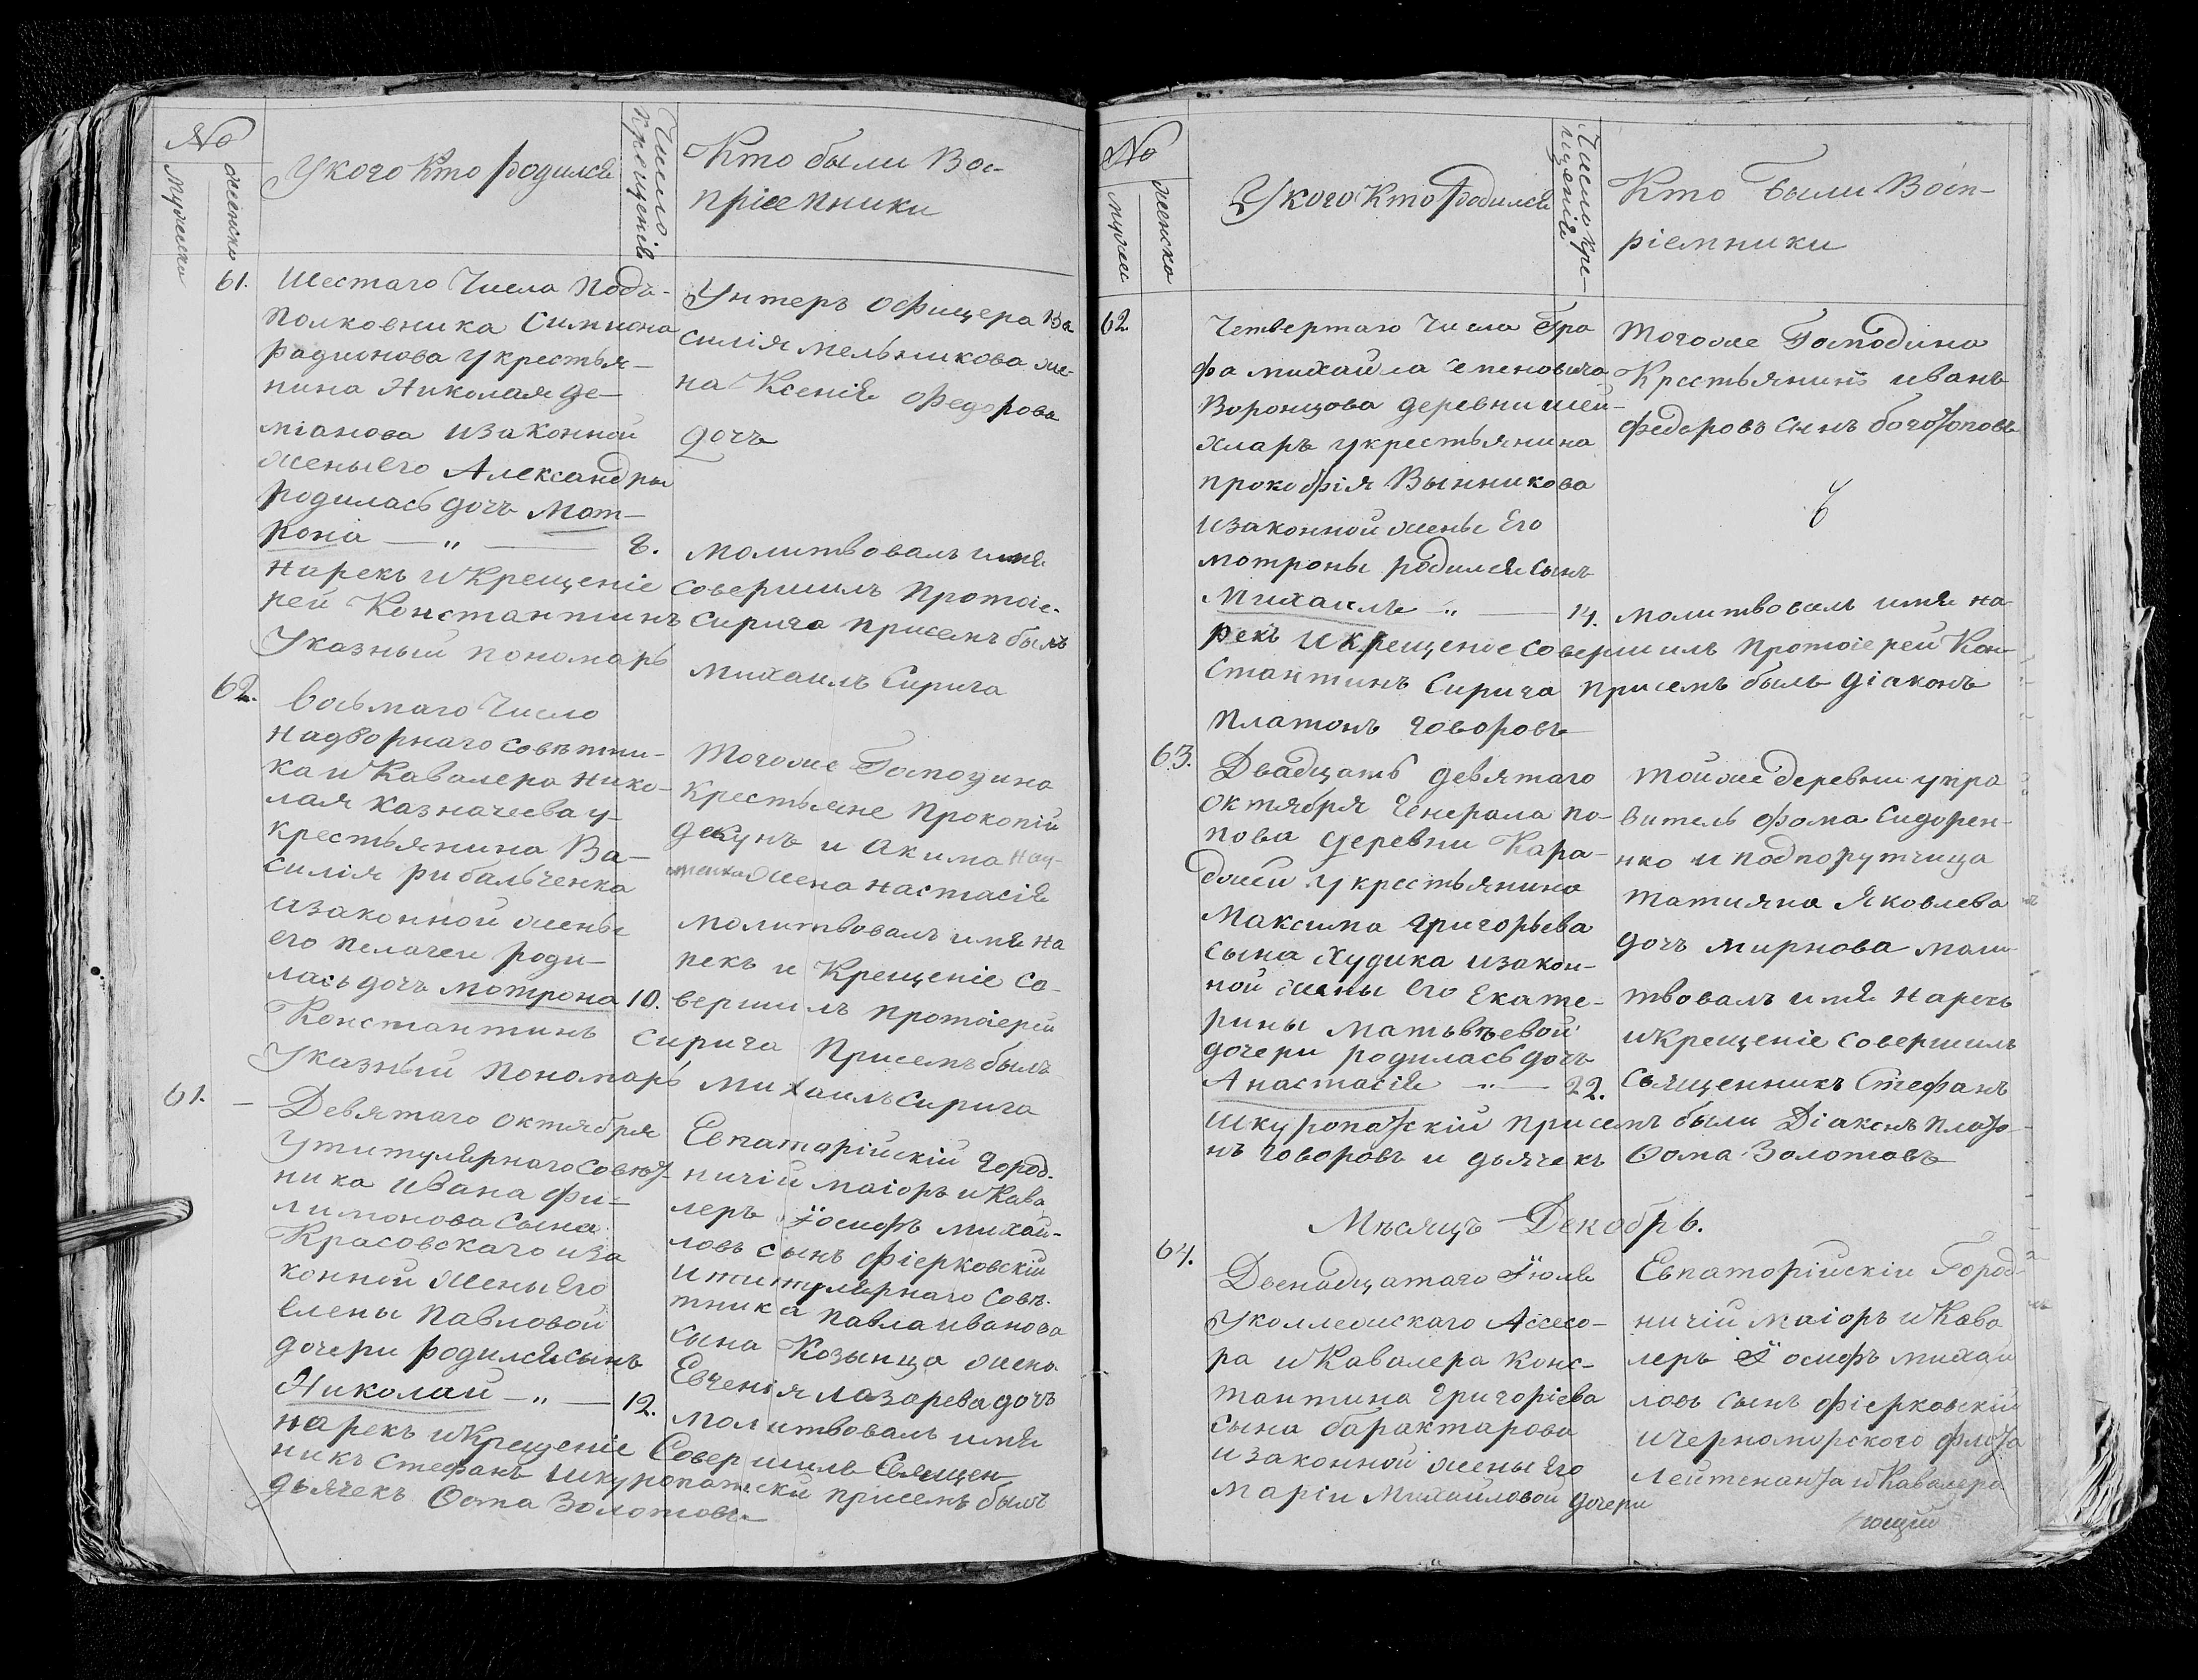 No
мужески
женски
У кого Кто родился
Число Крещенія
Кто были Вос-
пріемники
61.
Шестаго Числа Подъ-
полковника Симиона
радионова у крестья-
нина Николая де-
міанова изаконной
жены его Александры
родилась дочь Мот-
рона — „ — 8.
Унтеръ офицера Ва
силія мельникова же-
на Ксенія федорова
дочь
молитвовалъ имя
нарекъ и Крещеніе совершилъ протоіе-
рей Константинъ Сирига присемъ былъ
Указный пономарь Михаилъ Сирига
62.
Восьмаго Число
надворнаго совѣтни-
ка и Кавалера Нико-
лая Казначеева у
крестьянина Ва-
силія рибальченка
изаконной жены
его пелагеи роди-
лась дочь мотрона 10.
Тогоже Господина
крестьяне Прокопій
декунъ и акима
жена настасія
молитвовалъ имя на
рекъ и Крещеніе со-
вершилъ протоіерей
Константинъ Сирига Присемъ былъ
Указный Пономарь Михаилъ Сирига
61. —
Девятаго октября
У титулярнаго совѣт-
ника ивана фи-
лимонова сына
Красовскаго иза
конной жены его
Елены Павловой
дочери родился сынъ
Николай — „ — 12.
Евпаторійскій город-
ничій маіоръ и Кава
леръ Іосифъ михай-
ловъ сынъ фіерковскій
и титулярнаго совѣ-
тника павла иванова
сына Козынца жена
Евгенія лазарева дочь
молитвовалъ имя
нарекъ и Крещеніе Совершилъ Священ-
никъ Стефанъ шкуропатски присемъ былъ
дьячекъ Ѳома Золотовъ
No
мужес
женска
У кого Кто родился
Число кре-
щенія
Кто были Восп-
ріемники
62.
Четвертаго Числа Гра
фа михайла семеновича
Воронцова деревни шей-
хларъ у крестьянина
прокофія Вынникова
изаконной жены его
мотроны родился сынъ
Михаилъ „ — 14.
Тогоже Господина
Крестьянинъ иванъ
федоровъ сынъ боготоповъ
молитвовалъ имя на
рекъ и крещеніе совершилъ протоіерей Кон-
стантинъ Сирига присемъ былъ діаконъ
платонъ говоровъ
63.
Двадцать девятаго
октября Генерала по-
пова деревни Кара-
джи у крестьянина
Максима григорьева
сына худика изакон-
ной жены его Екате-
рины матьвѣевой
дочери родилась дочь
Анастасія — „ — 22.
тойже деревни упра
витель фома сидорен-
нко и подпорутчица
татияна Яковлева
дочь мирнова моли
твовалъ имя нарекъ
и Крещеніе совершилъ
священникъ Стефанъ
шкуропатскій присемъ были Діаконъ плато-
нъ говоровъ и дьячекъ Ѳома Золотовъ
Мѣсяцъ Декабрь.
64.
Двенадцатаго Іюля
У коллежскаго Ассесо-
ра и Кавалера Конс-
тантина григоріева
сына барактарова
изаконной жены его
маріи михаиловой дочери
Евпаторійскіи Город-
ничій маіоръ и Кава
леръ Іосифъ михаи
ловъ сынъ фіерковскій
и черноморского флота
лейтенанта и Кавалера